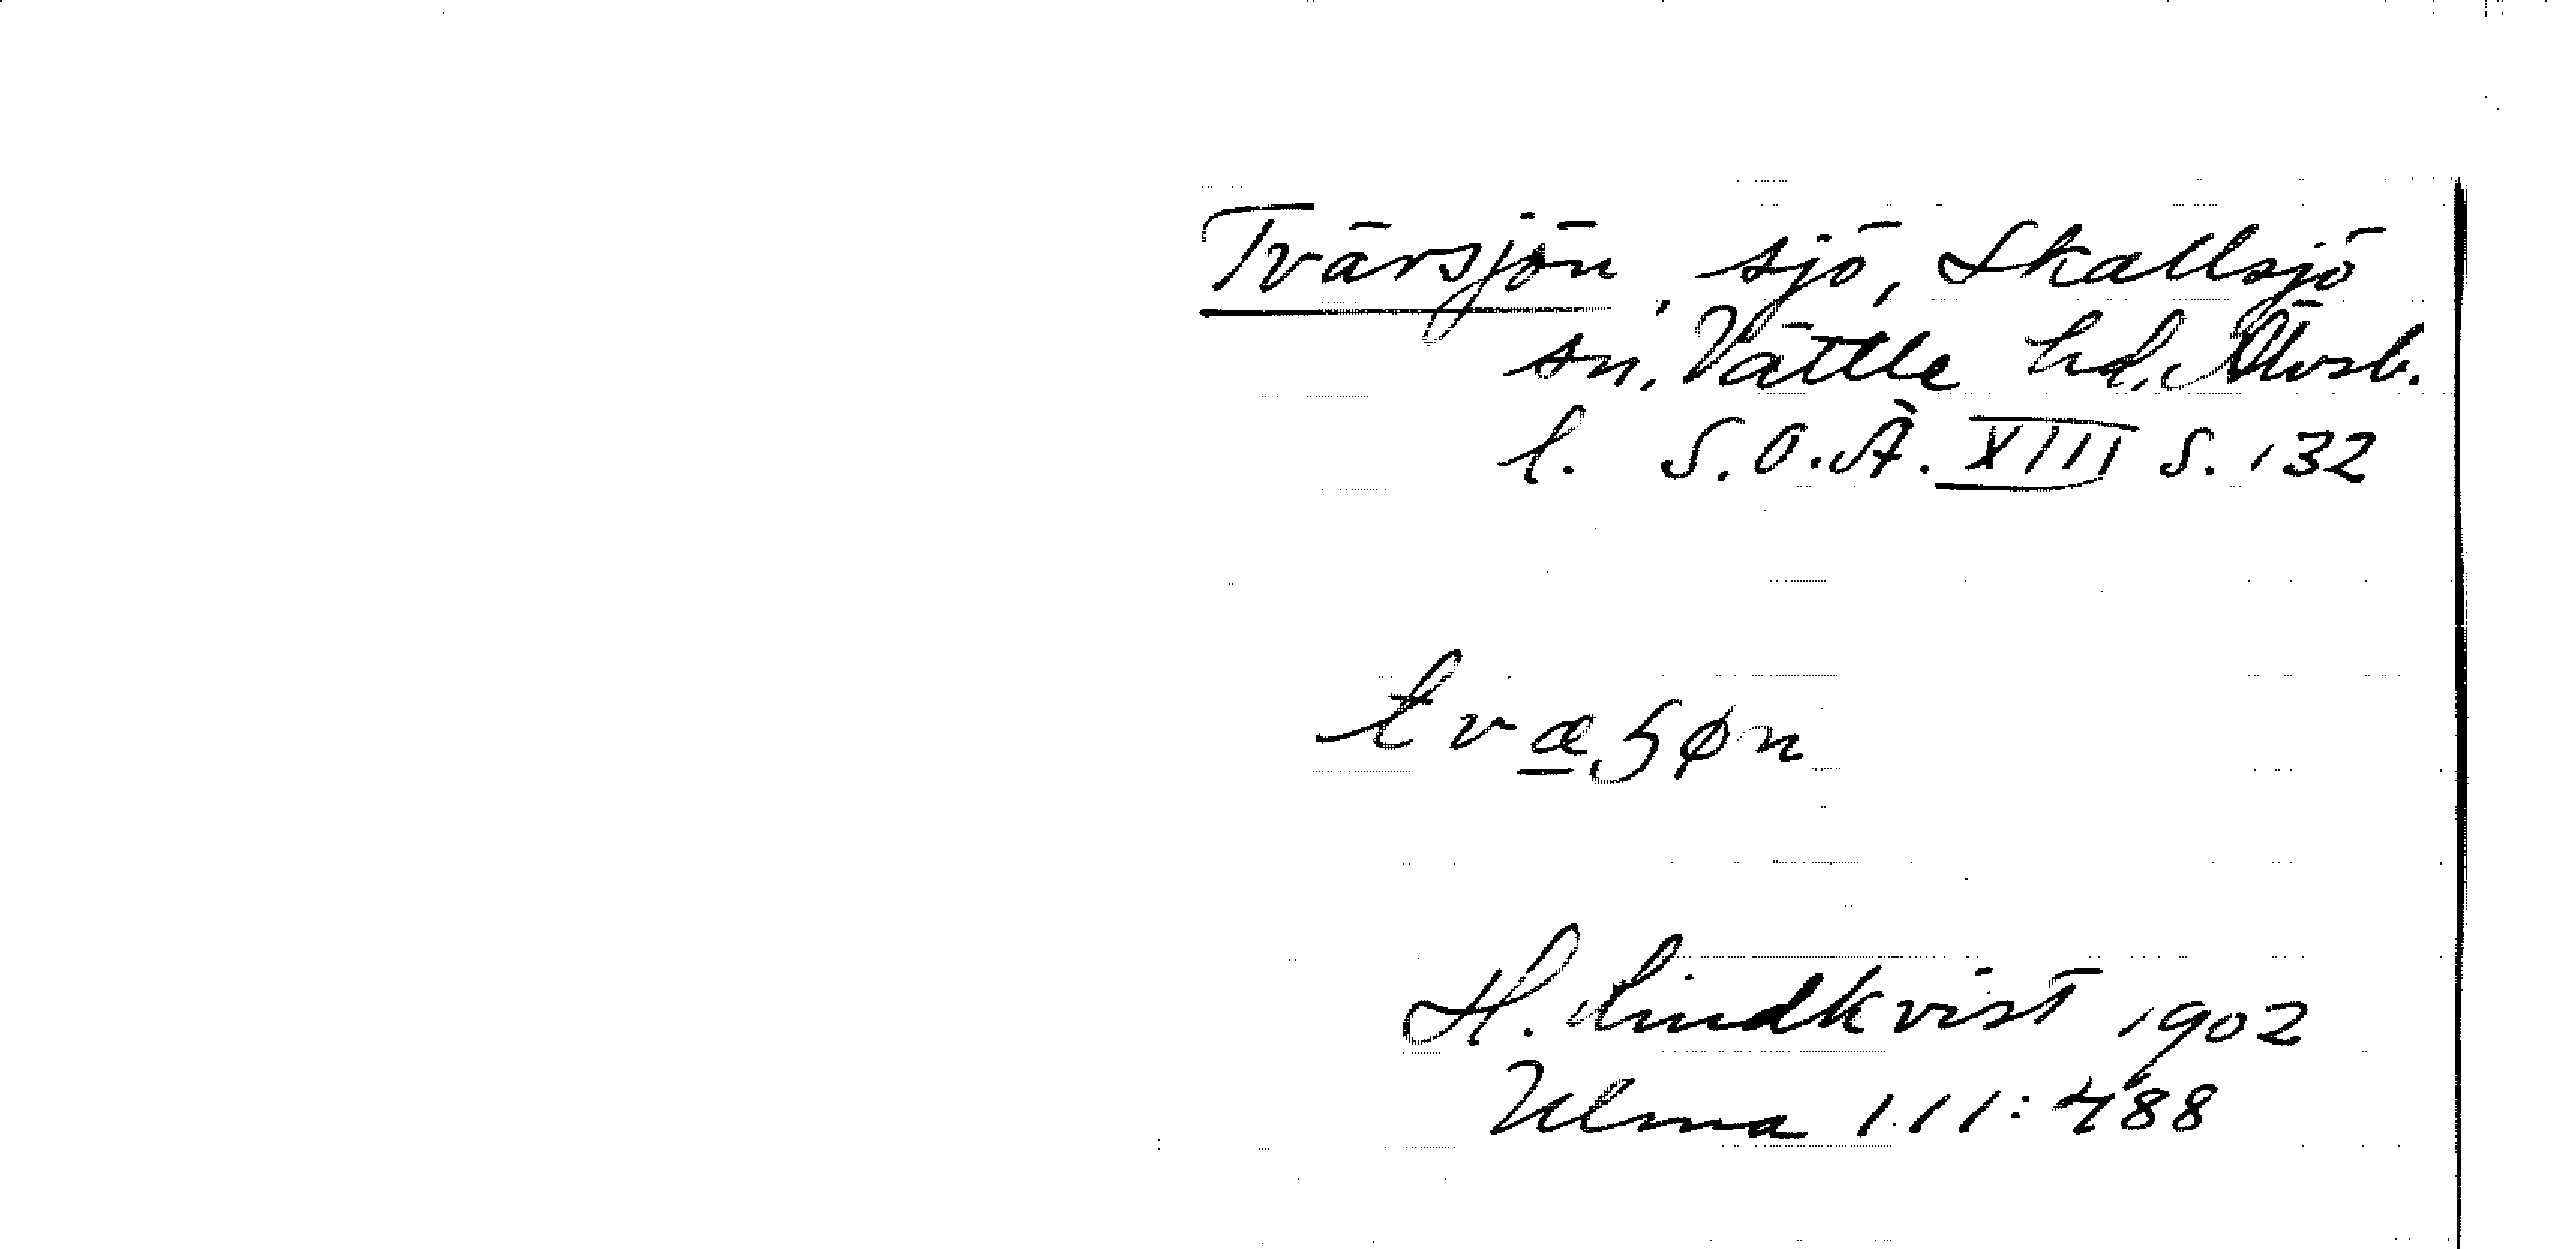 Tvärsjön, sjö, Skallsjö
sn. Vättle hd, Älvsb.
l. S.O.Ä. XIII S. 132
tvæɧøn
H. Lindkvist 1902
Ulma 111:488